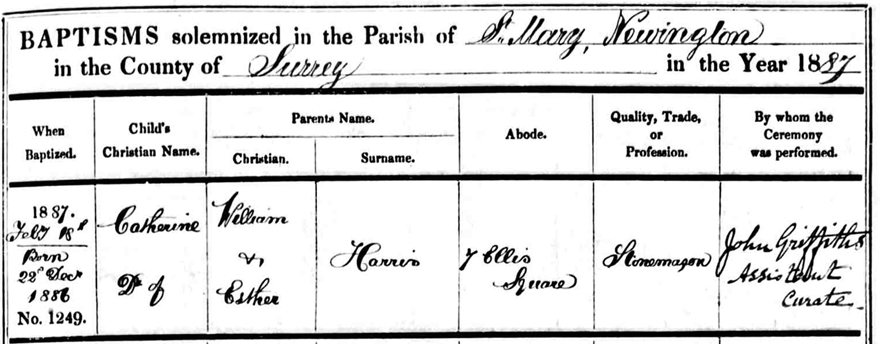 BAPTISMS solemnized in the Parish of St Mary, Newington
in the County of Surrey in the Year 1887
When Baptized.
Child's Christian Name.
Parents Name.
Christian.
Surname.
Abode.
Quality, Trade, or Profession.
By whom the Ceremony was performed.
1887.
Feby 18th
Born
22d Decr
1886
No. 1249.
Catherine
Dr of
William
&
Esther
Harris
7 Ellis
Square
Stonemason
John Griffiths
Assistant
Curate